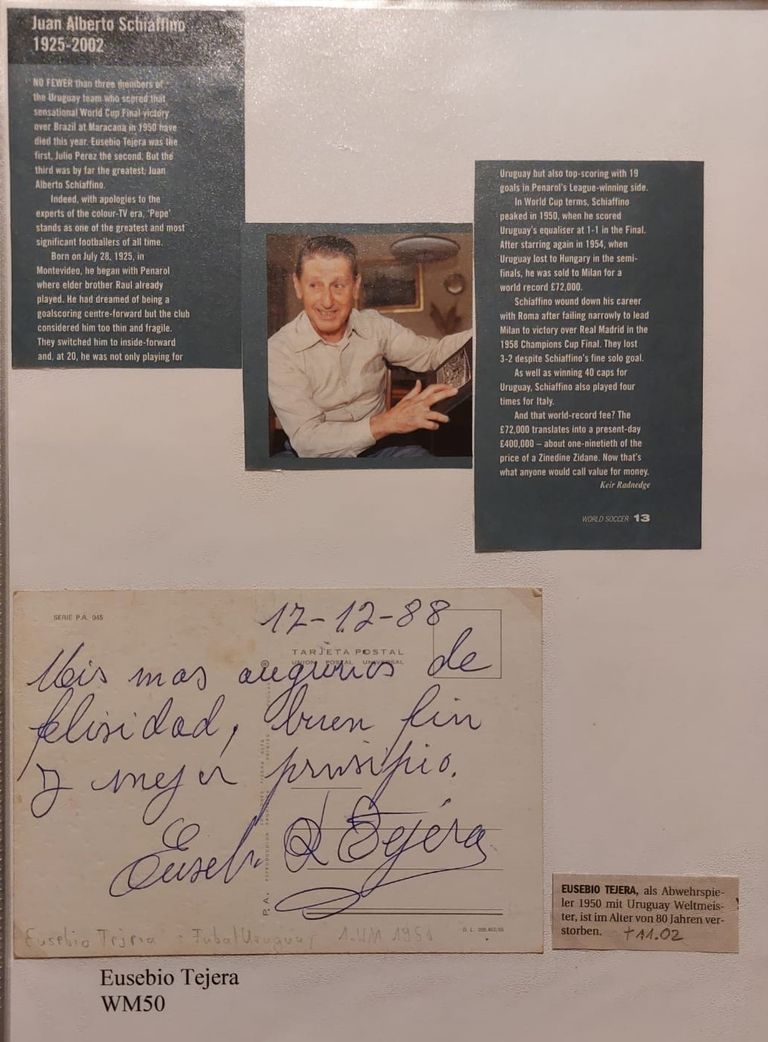 Juan Alberto Schiaffino
1925-2002
NO FEWER than three members of
the Uruguay team who scored that
sensational World Cup Final victory
over Brazil at Maracana in 1950 have
died this year. Eusebio Tejera was the
first, Julio Perez the second. But the
third was by far the greatest: Juan
Alberto Schiaffino.
Indeed, with apologies to the
experts of the colour-TV era, 'Pepe'
stands as one of the greatest and most
significant footballers of all time.
Born on July 28, 1925, in
Montevideo, he began with Penarol
where elder brother Raul already
played. He had dreamed of being a
goalscoring centre-forward but the club
considered him too thin and fragile.
They switched him to inside-forward
and, at 20, he was not only playing for
Uruguay but also top-scoring with 19
goals in Penarol's League-winning side.
In World Cup terms, Schiaffino
peaked in 1950, when he scored
Uruguay's equaliser at 1-1 in the Final.
After starring again in 1954, when
Uruguay lost to Hungary in the semi-
finals, he was sold to Milan for a
world record £72,000.
Schiaffino wound down his career
with Roma after failing narrowly to lead
Milan to victory over Real Madrid in the
1958 Champions Cup Final. They lost
3-2 despite Schiaffino's fine solo goal.
As well as winning 40 caps for
Uruguay, Schiaffino also played four
times for Italy.
And that world-record fee? The
£72,000 translates into a present-day
£400,000 – about one-ninetieth of the
price of a Zinedine Zidane. Now that's
what anyone would call value for money.
Keir Radnedge
WORLD SOCCER 13
SERIE P.A. 045
17-12-88
TARJETA POSTAL
UNION POSTAL UNIVERSAL
Mis mas augurios de
felisidad, buen fin
y mejor prinsipio.
Eusebio Tejera
P.A.
D. L.
Eusebio Tejera - Uruguay
EUSEBIO TEJERA, als Abwehrspie-
ler 1950 mit Uruguay Weltmeis-
ter, ist im Alter von 80 Jahren ver-
storben. + 11.02
Eusebio Tejera
WM50